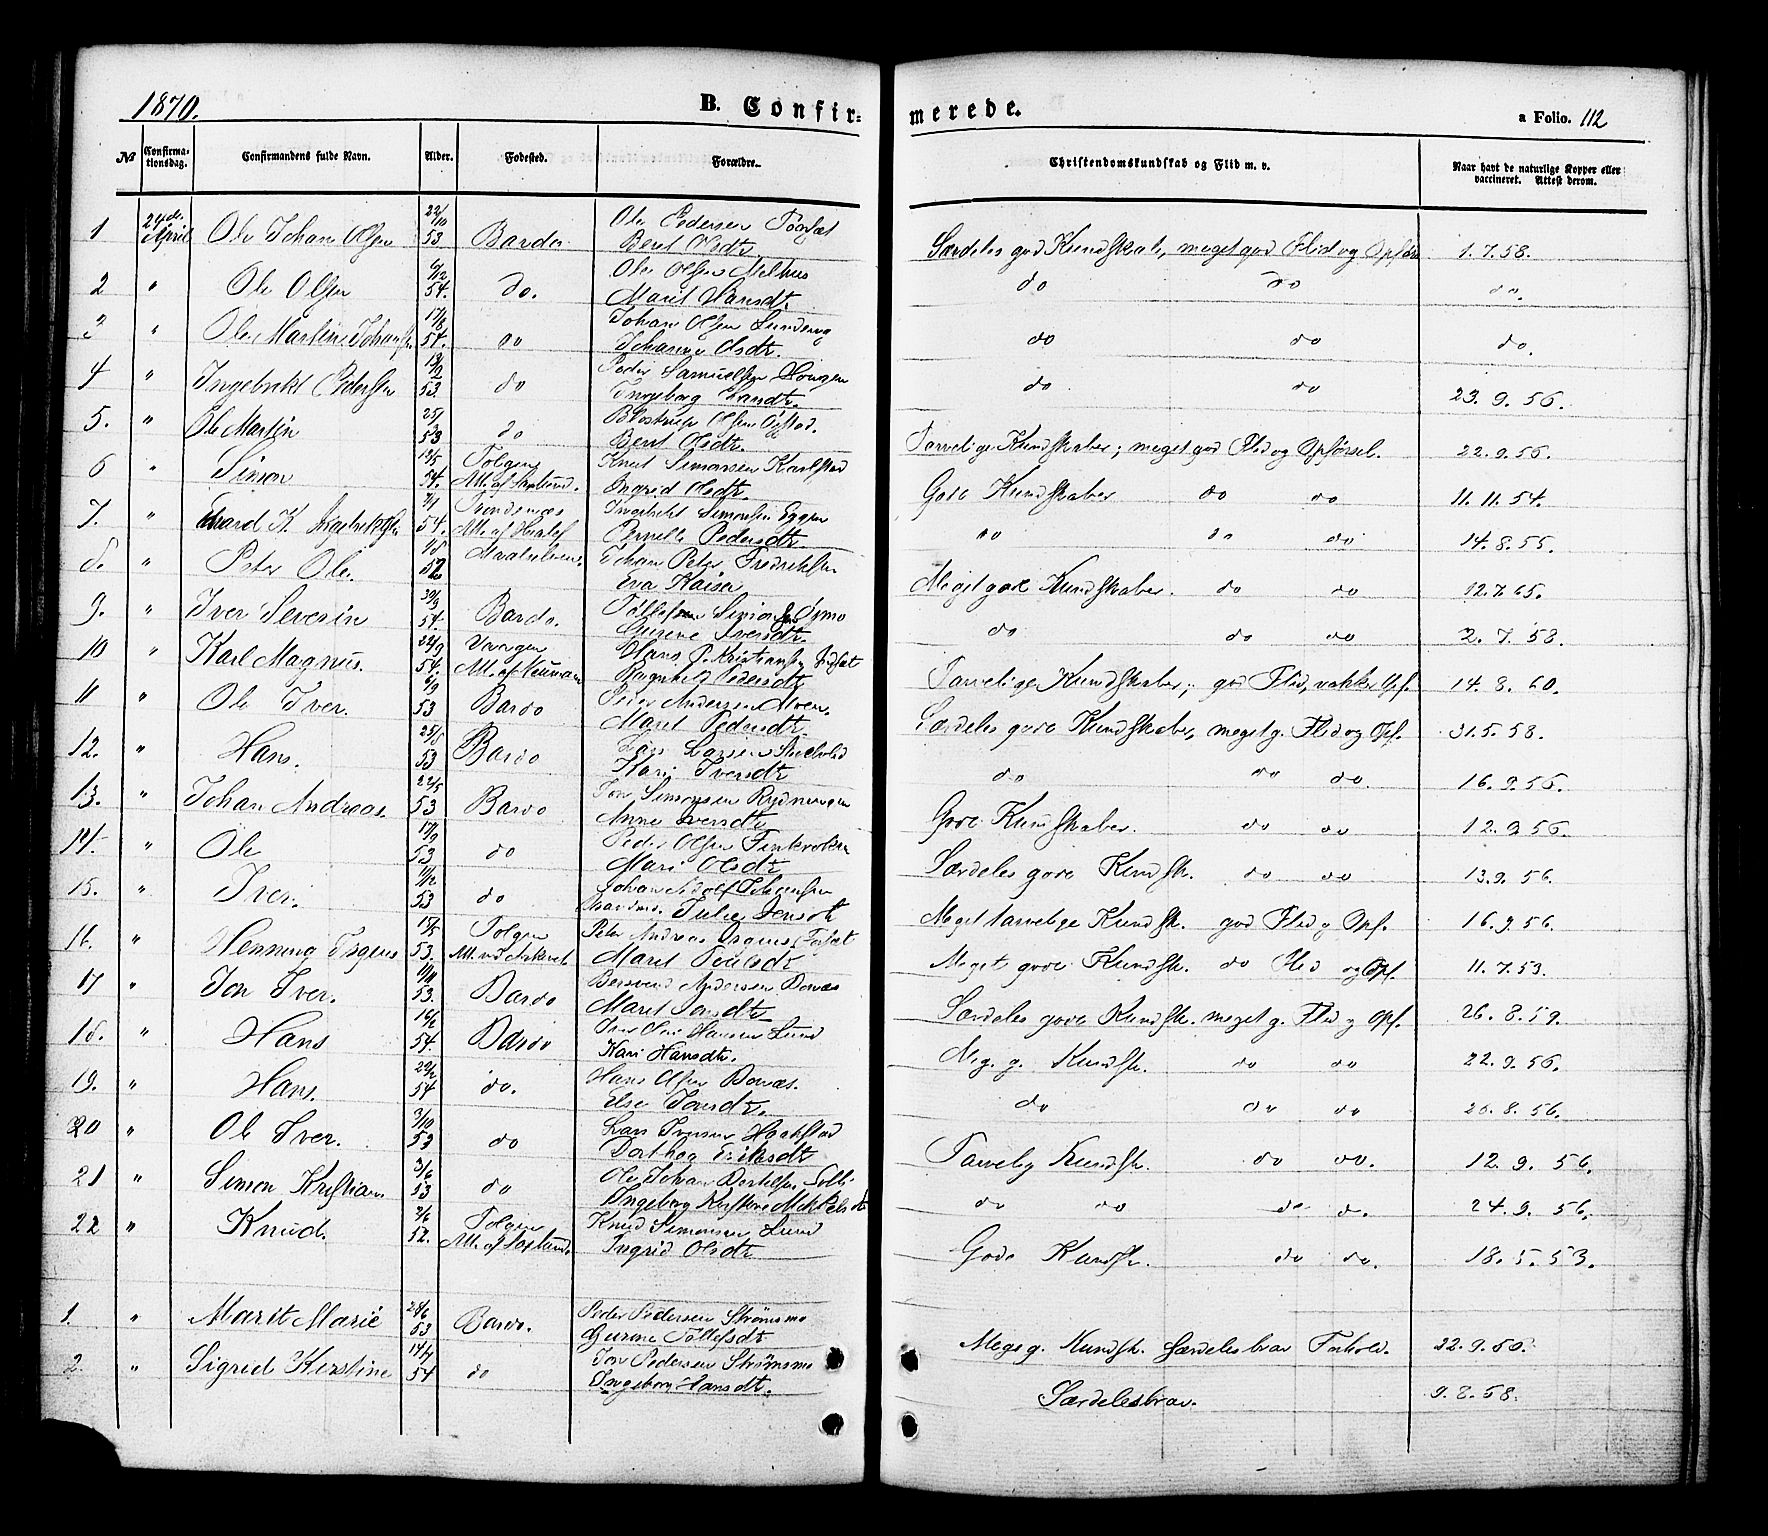 1870.
B. Confir-
merede.
a Folio. 112
№ Confirma-tionsdag. Confirmandens fulde Navn. Alder. Fodested. Forældre. Christendomskundskab og Flid m. v. Naar havt de naturlige Kopper eller vaccineret. Attest derom.
1 24de April Ole Johan Olsen 22/10 53 Bardo Ole Pedersen
Berit Olsdtr Særdeles god Kundskab, meget god Flid og Opførs 1.7.58.
2 " Ole Olsen 6/12 54. do. Ole Olsen Melhus
Marit Hansdtr do do do.
3 " Ole Martin Johans 17/8 54. do Johan Olsen
Johanna Olsdtr. do do do.
4 " Ingebrikt Pedersen 53. do Peder Samuelsen
Ingeborg do do 23.9.56.
5. " Ole Martin 25/1 53 do Olsen
Berit Olsdtr. Tarvelige Kundskaber; meget god Flid og Opførsel. 22.9.56.
6 " Simon 13/5 54. Tolgen
Knut Simonsen Karlstad
Ingrid Olsdtr. Gode Kundskaber do do 11.11.54.
7. " K. Ingebriktsen 54. Trondenæs
Ingebrikt Simonsen Eggen
Pernille Pedersdtr. do do do 14.8.55.
8. " Peter Ole. Maalselven. Johan Peter Fredriksen
Eva Kaisa Meget gode Kundskaber. do do 12.7.65.
9. " Iver Severin 30/3 54. Bardo. Tollef Simonsen Øvmo
Gurene Iversdtr. do do do 2.7.58.
10 " Karl Magnus. 54. Hans P. Kristiansen
Ragnhild Pedersdtr Tarvelige Kundskaber; god Flid, vakker Opf. 14.8.60.
11 " Ole Iver. 6/9 53 Bardo Peter Andersen
Marit Pedersdtr. Særdeles gode Kundskaber, meget g. Flid og Opf. 31.5.58.
12. " Hans. 53 Bardo Lars Larsen
Kari Iversdtr do do do. 16.9.56.
13. " Johan Andreas. 22/5 53 Bardo Jon Simonsen Rydningen
Anne Iversdtr Gode Kundskaber. do do 12.9.56.
14. " Ole 17/9 53. do Peder Olsen Finkroken
Mari Olsdtr Særdeles gode Kundsk. do do 13.9.56.
15. " Iver. 11/12 53 do Johan Adolf Johansen
Julie Jensdtr Meget tarvelige Kundsk. god Flid og Opf. 16.9.56.
16. " Henning Ingens 17/5 53. Tolgen
Peter Andreas
Marit Meget gode Kundsk. do Flid og Opf. 11.7.53.
17 " Jon Iver. 11/11 53. Bardo Bersvend Andersen Bonæs
Marit Jonsdtr Særdeles gode Kundsk. meget g. Flid og Opf. 26.8.59.
18. " Hans 16/2 54. Bardo Hansen Lund
Kari Hansdtr. Meg. g. Kundsk. do do 22.9.56.
19. " Hans. 54 do. Hans Olsen Bonæs.
Else Jonsdtr. do do do 26.8.56.
20 " Ole Iver. 3/10 53 do Lars Iversen Haakstad
Dorthea Eriksdtr Tarvelig Kundsk. do do. 12.9.56.
21 " Simon Kristian 3/6 53 do Ole Johan
Ingeborg Kirstine Mikkelsdtr do do do do. 24.9.56.
22 " Knud. 2/6 52. Tolgen
Knud Simonsen Lund
Ingrid Olsdtr Gode Kundsk. do do. 18.5.53.
1. " Marit Marie 28/6 53 Bardo. Peder Pedersen Strømsmo
Gurine Tollefsdtr Meget g. Kundsk. særdeles brav Forhold. 22.9.50.
2. " Sigrid Kirstine 54 do Jon Pedersen Strømsmo
Ingeborg Hansdtr. Særdeles brav. 9.8.58.